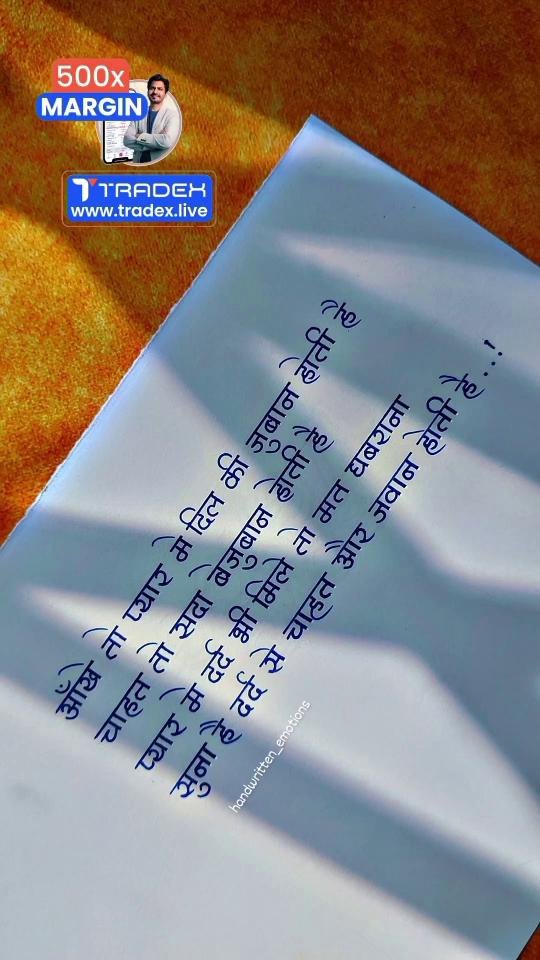 500x
MARGIN
TRADEX
www.tradex.live
आँखे तो प्यार मे दिल की जुबान होती है
चाहत तो सदा बेजुबान होती है
प्यार मे दर्द भी मिले तो मत घबराना
सुना है दर्द से चाहत और जवान होती है...!
handwritten_emotions